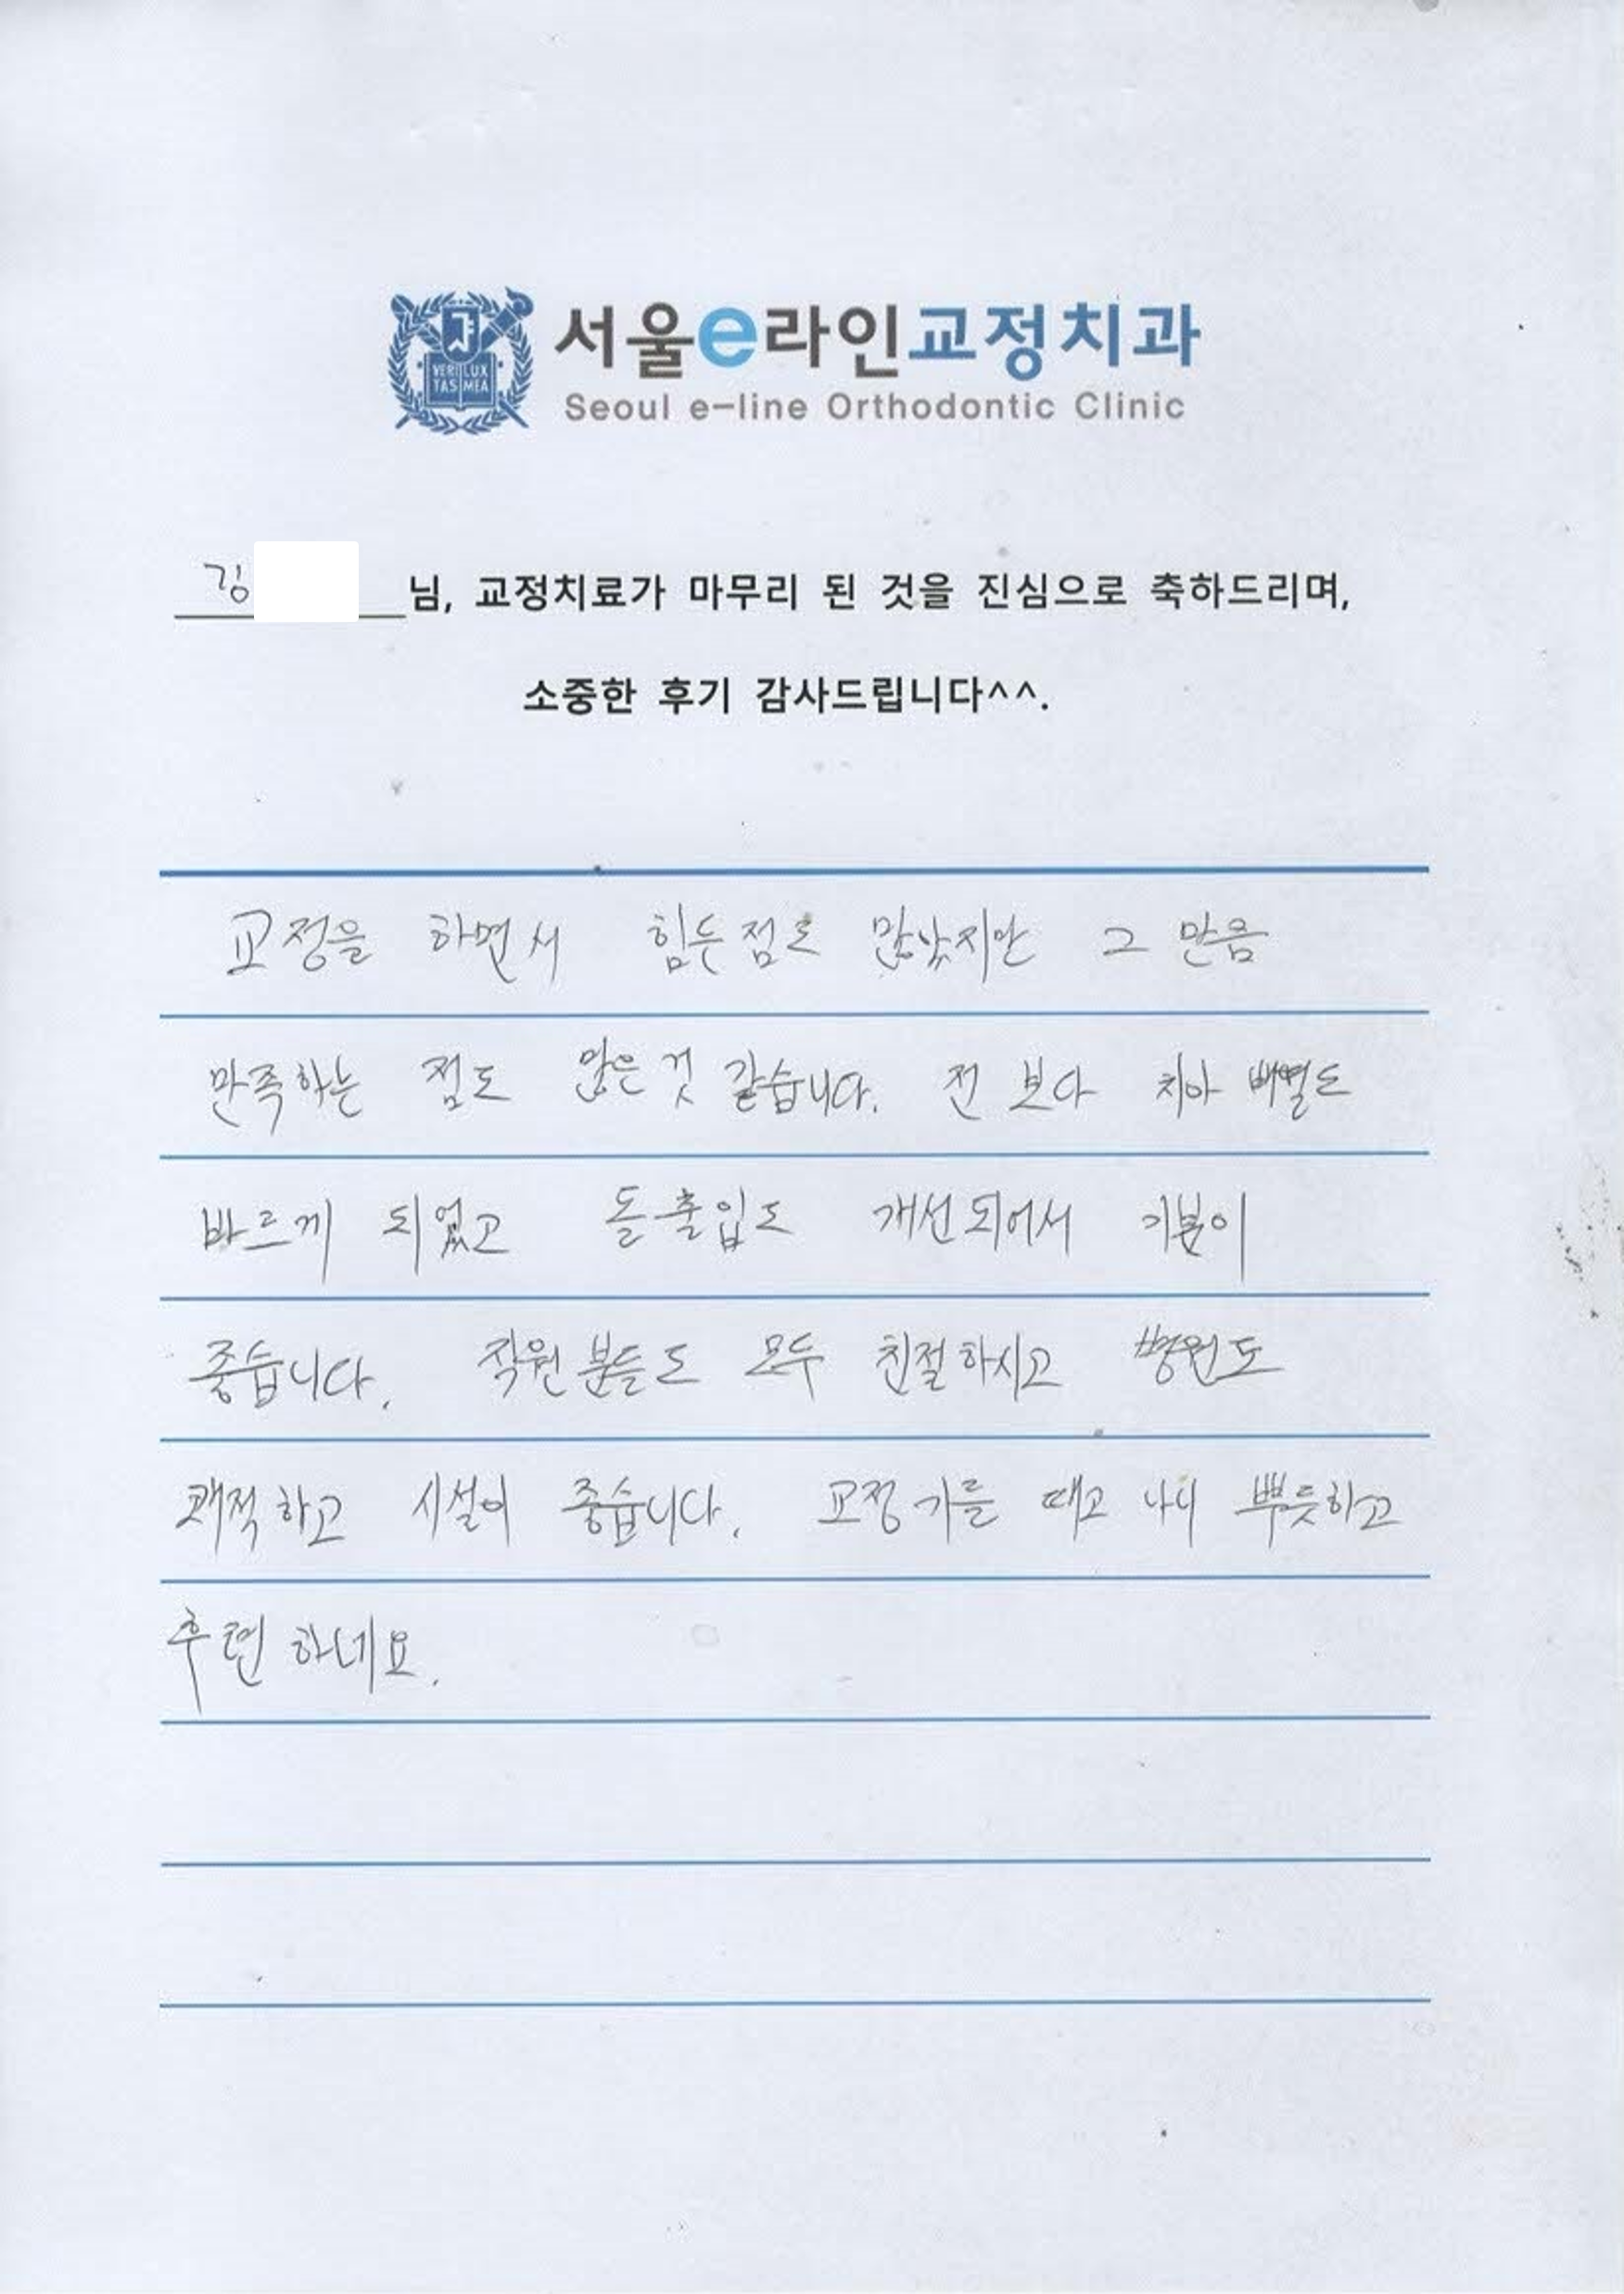 VERI LUX
TAS MEA
서울e라인교정치과
Seoul e-line Orthodontic Clinic
김 님, 교정치료가 마무리 된 것을 진심으로 축하드리며,
소중한 후기 감사드립니다^^.
교정을 하면서 힘든점도 많았지만 그 만큼
만족하는 점도 많은 것 같습니다. 전 보다 치아 배열도
바르게 되었고 돌출입도 개선되어서 기분이
좋습니다. 직원분들도 모두 친절하시고 병원도
쾌적하고 시설이 좋습니다. 교정기를 때고 나니 뿌듯하고
후련하네요.